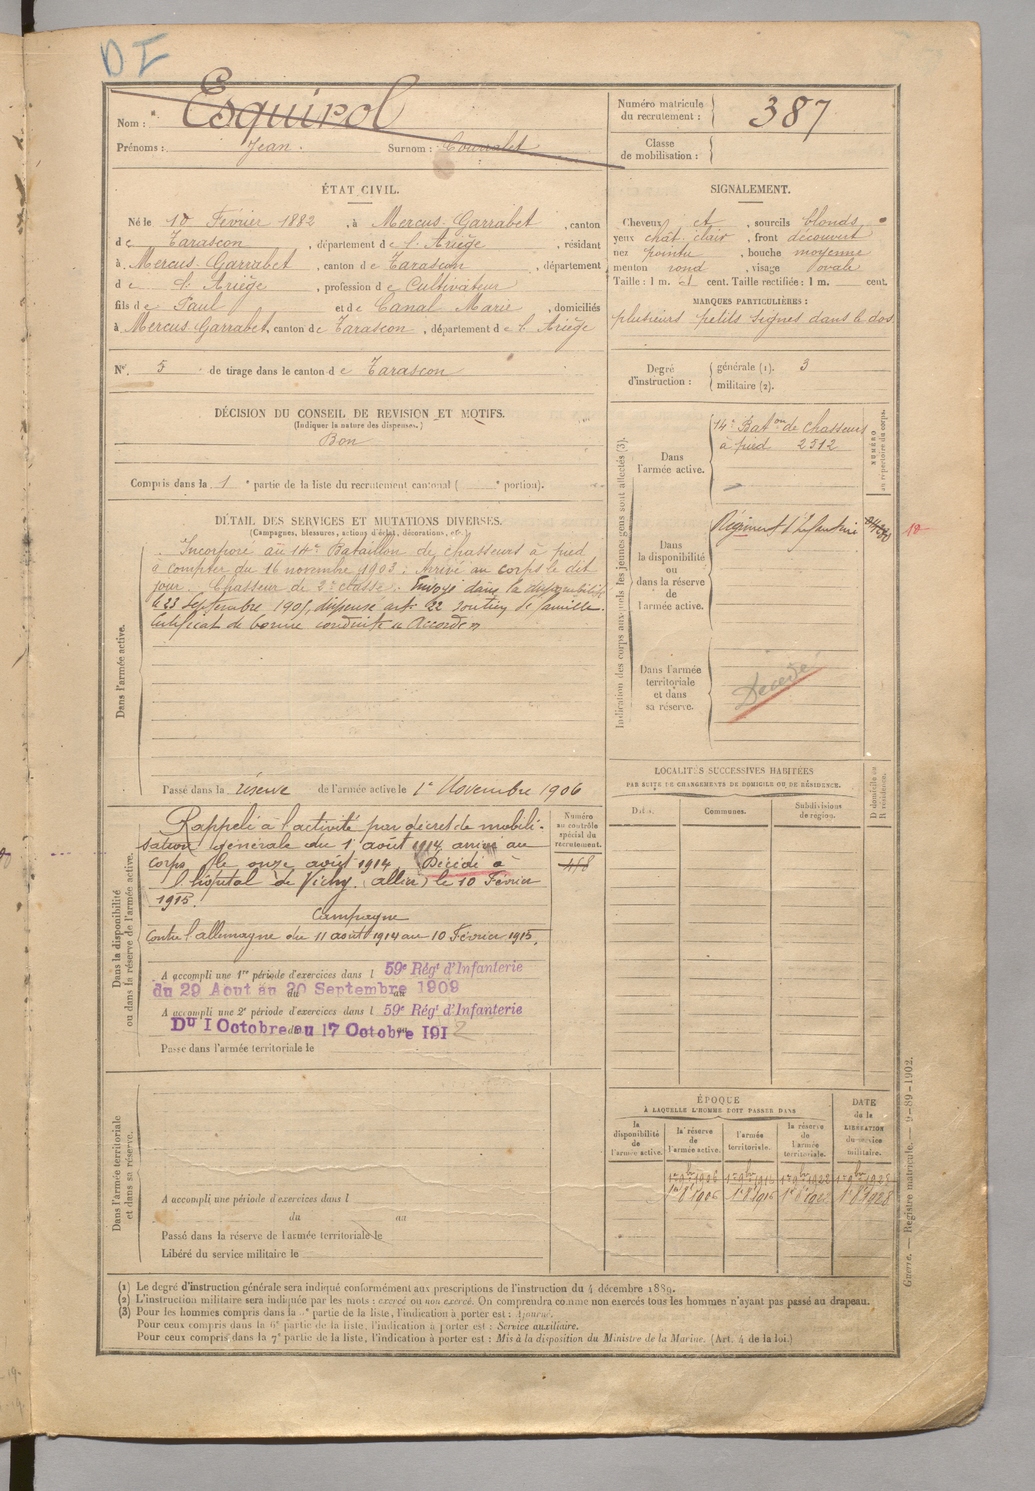 DI
Nom : Esquirol
Prénoms : Jean. Surnom : Courralet
Numéro matricule du recrutement : 387
Classe de mobilisation :
ÉTAT CIVIL.
Né le 10 Février 1882, à Mercus-Garrabet, canton
de Tarascon, département de l'Ariège, résidant
à Mercus-Garrabet, canton de Tarascon, département
de l'Ariège, profession de Cultivateur
fils de Paul et de Canal Marie, domiciliés
à Mercus-Garrabet, canton de Tarascon, département de l'Ariège
N°. 5 de tirage dans le canton de Tarascon
SIGNALEMENT.
Cheveux et, sourcils blonds
yeux chât. clair, front découvert
nez pointu, bouche moyenne
menton rond, visage ovale
Taille : 1 m. cent. Taille rectifiée : 1 m. cent.
MARQUES PARTICULIÈRES :
plusieurs petits signes dans le dos
Degré d'instruction : générale (1). 3
militaire (2).
DÉCISION DU CONSEIL DE REVISION ET MOTIFS.
(Indiquer la nature des dispenses.)
Bon
Compris dans la 1e partie de la liste du recrutement cantonal ( e portion).
DÉTAIL DES SERVICES ET MUTATIONS DIVERSES.
(Campagnes, blessures, actions d'éclat, décorations, etc.)
Dans l'armée active.
Incorporé au 14e Bataillon de chasseurs à pied
à compter du 16 novembre 1903. Arrivé au corps le dit
jour. Chasseur de 2e classe. Envoyé dans la disponibilité
le 23 Septembre 1905, dispensé art. 22 soutien de famille.
Certificat de bonne conduite "Accordé"
Passé dans la réserve de l'armée active le 1er Novembre 1906
Indication des corps auxquels les jeunes gens sont affectés (3).
NUMÉRO au répertoire du corps.
Dans l'armée active.
14e Baton de Chasseurs
à pied 2512
Dans la disponibilité ou dans la réserve de l'armée active.
Régiment d'Infanterie
18
Dans l'armée territoriale et dans sa réserve.
Décédé
LOCALITÉS SUCCESSIVES HABITÉES
PAR SUITE DE CHANGEMENTS DE DOMICILE OU DE RÉSIDENCE.
Dates. Communes. Subdivisions de région. D domicile ou R résidence.
Dans la disponibilité ou dans la réserve de l'armée active.
Numéro au contrôle spécial du recrutement.
468
Rappelé à l'activité par décret de mobili-
sation générale du 1er août 1914 arrivé au
Corps le onze août 1914 Décédé à
l'hôpital de Vichy (allier) le 10 Février
1915.
Campagne
Contre l'allemagne du 11 août 1914 au 10 Février 1915.
A accompli une 1re période d'exercices dans l 59e Régt d'Infanterie
du 29 Aout au 20 Septembre 1909
A accompli une 2e période d'exercices dans l 59e Régt d'Infanterie
Du 1 Octobre au 17 Octobre 1912
Passé dans l'armée territoriale le
Dans l'armée territoriale et dans sa réserve.
A accompli une période d'exercices dans l
du au
Passé dans la réserve de l'armée territoriale le
Libéré du service militaire le
ÉPOQUE
À LAQUELLE L'HOMME DOIT PASSER DANS
la disponibilité de l'armée active.
la réserve de l'armée active.
l'armée territoriale.
la réserve de l'armée territoriale.
DATE de la LIBÉRATION du service militaire.
1er 9bre 1906 1er 9bre 1916 1er 9bre 1922 1er 9bre 1928
(1) Le degré d'instruction générale sera indiqué conformément aux prescriptions de l'instruction du 4 décembre 1889.
(2) L'instruction militaire sera indiquée par les mots : exercé ou non exercé. On comprendra comme non exercés tous les hommes n'ayant pas passé au drapeau.
(3) Pour les hommes compris dans la e partie de la liste, l'indication à porter est : Ajourné.
Pour ceux compris dans la 6e partie de la liste, l'indication à porter est : Service auxiliaire.
Pour ceux compris dans la 7e partie de la liste, l'indication à porter est : Mis à la disposition du Ministre de la Marine. (Art. 4 de la loi.)
Guerre. — Registre matricule. — 9-89-1902.